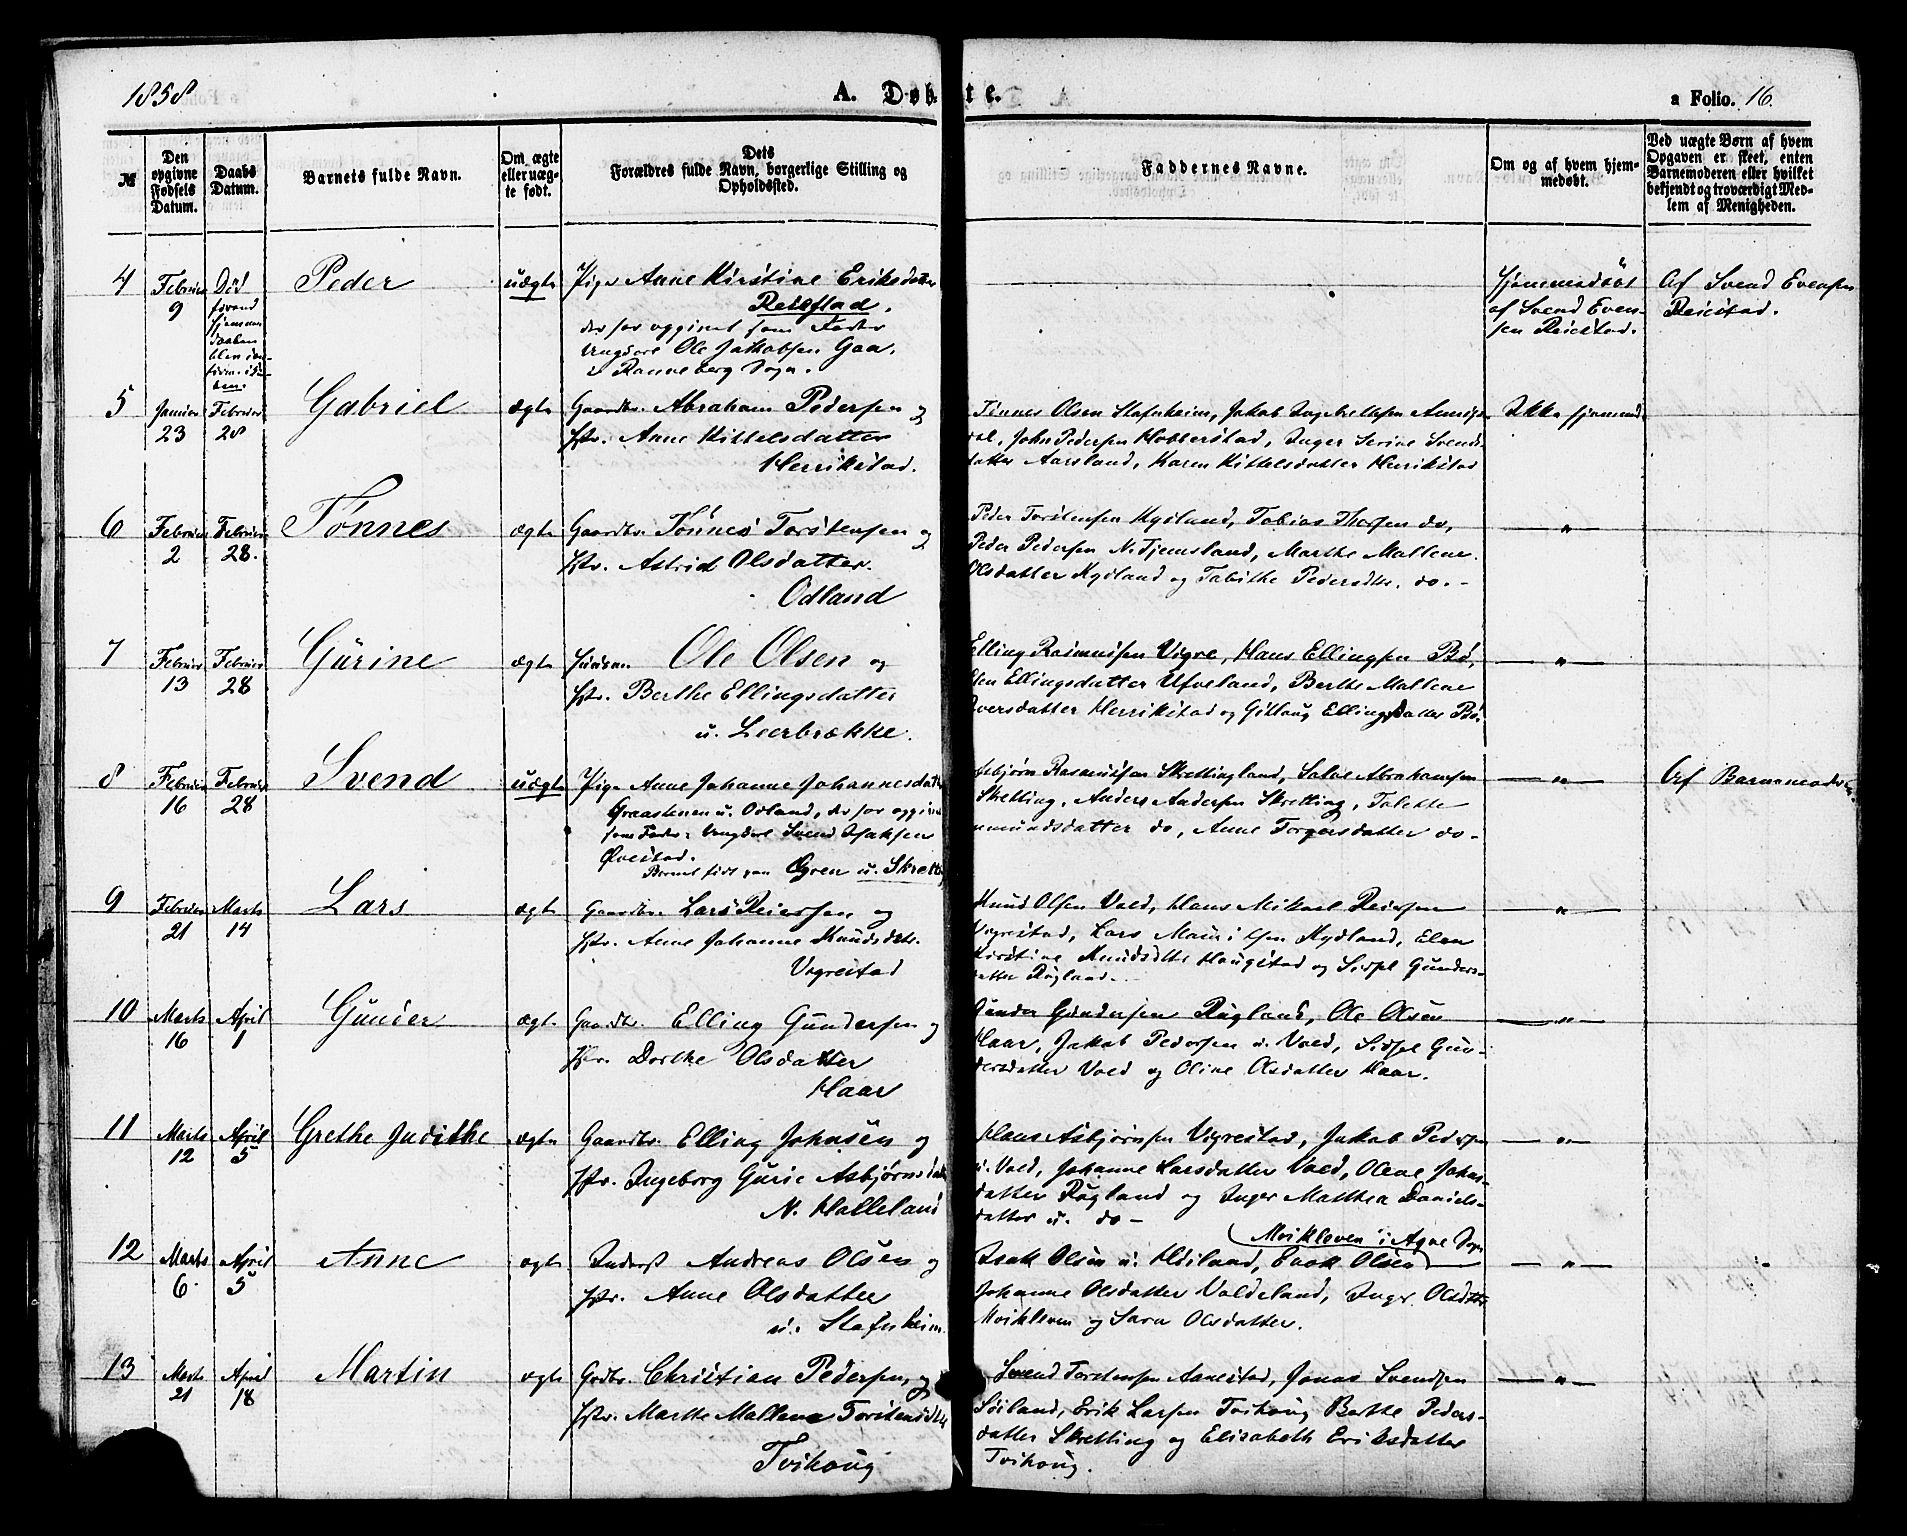 1858
A. Døbte.
a Folio. 16.
№
Den opgivne Fødsels Datum.
Daabs Datum.
Barnets fulde Navn.
Om ægte eller uægte født.
Dets Forældres fulde Navn, borgerlige Stilling og Opholdssted.
Faddernes Navne.
Om og af hvem hjemmedøbt.
Ved uægte Børn af hvem Opgaven er skeet, enten Barnemoderen eller hvilket bekjendt og troværdigt Medlem af Menigheden.
4
Februar 9
Død
Peder
uægte
Pige Anne Kirstine Eriksdatter
Reiestad.
der har opgivet som Fader
Ungkarl Ole Jakobsen Gaa
Hjemmedøbt
af Svend Even-
sen Reiestad.
Af Svend Evensen
Reiestad.
5
Januar 23
Februar 28
Gabriel
ægte
Gaardbr. Abraham Pedersen og
Hstr. Anne Kittelsdatter
Herrikstad.
Tønnes Olsen Stafnheim, Jakob Ingebretsen
John Pedersen Hobberstad, Inger Serine Svends-
datter Aarsland, Karen Kittelsdatter Herrikstad
Ikke hjemmed.
6
Februar 2
Februar 28.
Tønnes
ægte
Gaardbr. Tønnes Torstensen og
Hstr. Astrid Olsdatter.
Odland
Peder Torstensen Kydland, Tobias Thorsen do,
Peder Pedersen N. Tjemsland, Marthe Mallene
Olsdatter Kydland og Tabithe Pedersdtr. do. -
— " —
7
Februar 13
Februar 28
Gurine
ægte
Huusm. Ole Olsen og
Hstr. Berthe Ellingsdatter
u. Leerbrække.
Elling Rasmussen Vigre, Hans Ellingsen Bø,
Elen Ellingsdatter Ufveland, Berthe Mallene
Iversdatter Herrikstad og Gitlaug Ellingsdatter Bø.
— " —
8
Februar 16
Februar 28
Svend
uægte
Pige Anne Johanne Johannesdatter
Graastenen u. Odland, der har opgivet
som Fader: Ungkarl Svend Isaksen
Øvestad.
Barnet født paa Ogren u. Skretting
Asbjørn Rasmussen Skrettingland, Salve Abrahamsen
Skretting, Anders Andersen Skretting, Tolette
datter do, Anne Torgersdatter do -
— " —
Af Barnemoderen.
9
Februar 21
Marts 14
Lars
ægte
Gaardbr. Lars Reiersen og
Hstr. Anne Johanne Knudsdtr.
Vigrestad
Knud Olsen Vold, Hans Mikael Reiersen
Vigrestad, Lars Kydland, Elen
Kirstine Knudsdtr Haugstad og Sidsel Gunders-
datter Rugland.
— " —
10
Marts 16
April 1
Gunder
ægt.
Gaardbr. Elling Gundersen og
Hstr. Dorthe Olsdatter
Haar
Gunder Gundersen Rugland, Ole Olsen
Haar, Jakob Pedersen u. Vold, Sidsel Gun-
dersdatter Vold og Oline Olsdatter Haar.
— " —
11
Marts 12
April 5
Grethe Judithe
ægte
Gaardbr. Elling Johnsen og
Hstr. Ingeborg Gurie Asbjørnsdatter
N. Halleland
Hans Asbjørnsen Vigrestad, Jakob Pedersen
u. Vold, Johanne Larsdatter Vold, Olene Johns-
datter Rugland og Inger Matthea Daniels-
datter u. do -
— " —
12
Marts 6.
April 5
Anne
ægte
Inderst Andreas Olsen og
Hstr. Anne Olsdatter
u. Stafnheim.
Moikleven i Agne Sogn
Isak Olsen u. Høiland, Enok Olsen
Johanne Olsdatter Valdeland, Inger Olsdtr
Moikleven og Sara Olsdatter.
— " —
13
Marts 21
April 18
Martin
ægte
Gaardbr. Christian Pedersen, og
Hstr. Marthe Mallene Torstensdtr
Tvihoug
Svend Torstensen Aanestad, Jonas Svendsen
Søiland, Erik Larsen Tvihoug Berthe Peders-
datter Skretting og Elisabeth Eriksdatter
Tvihoug.
— " —